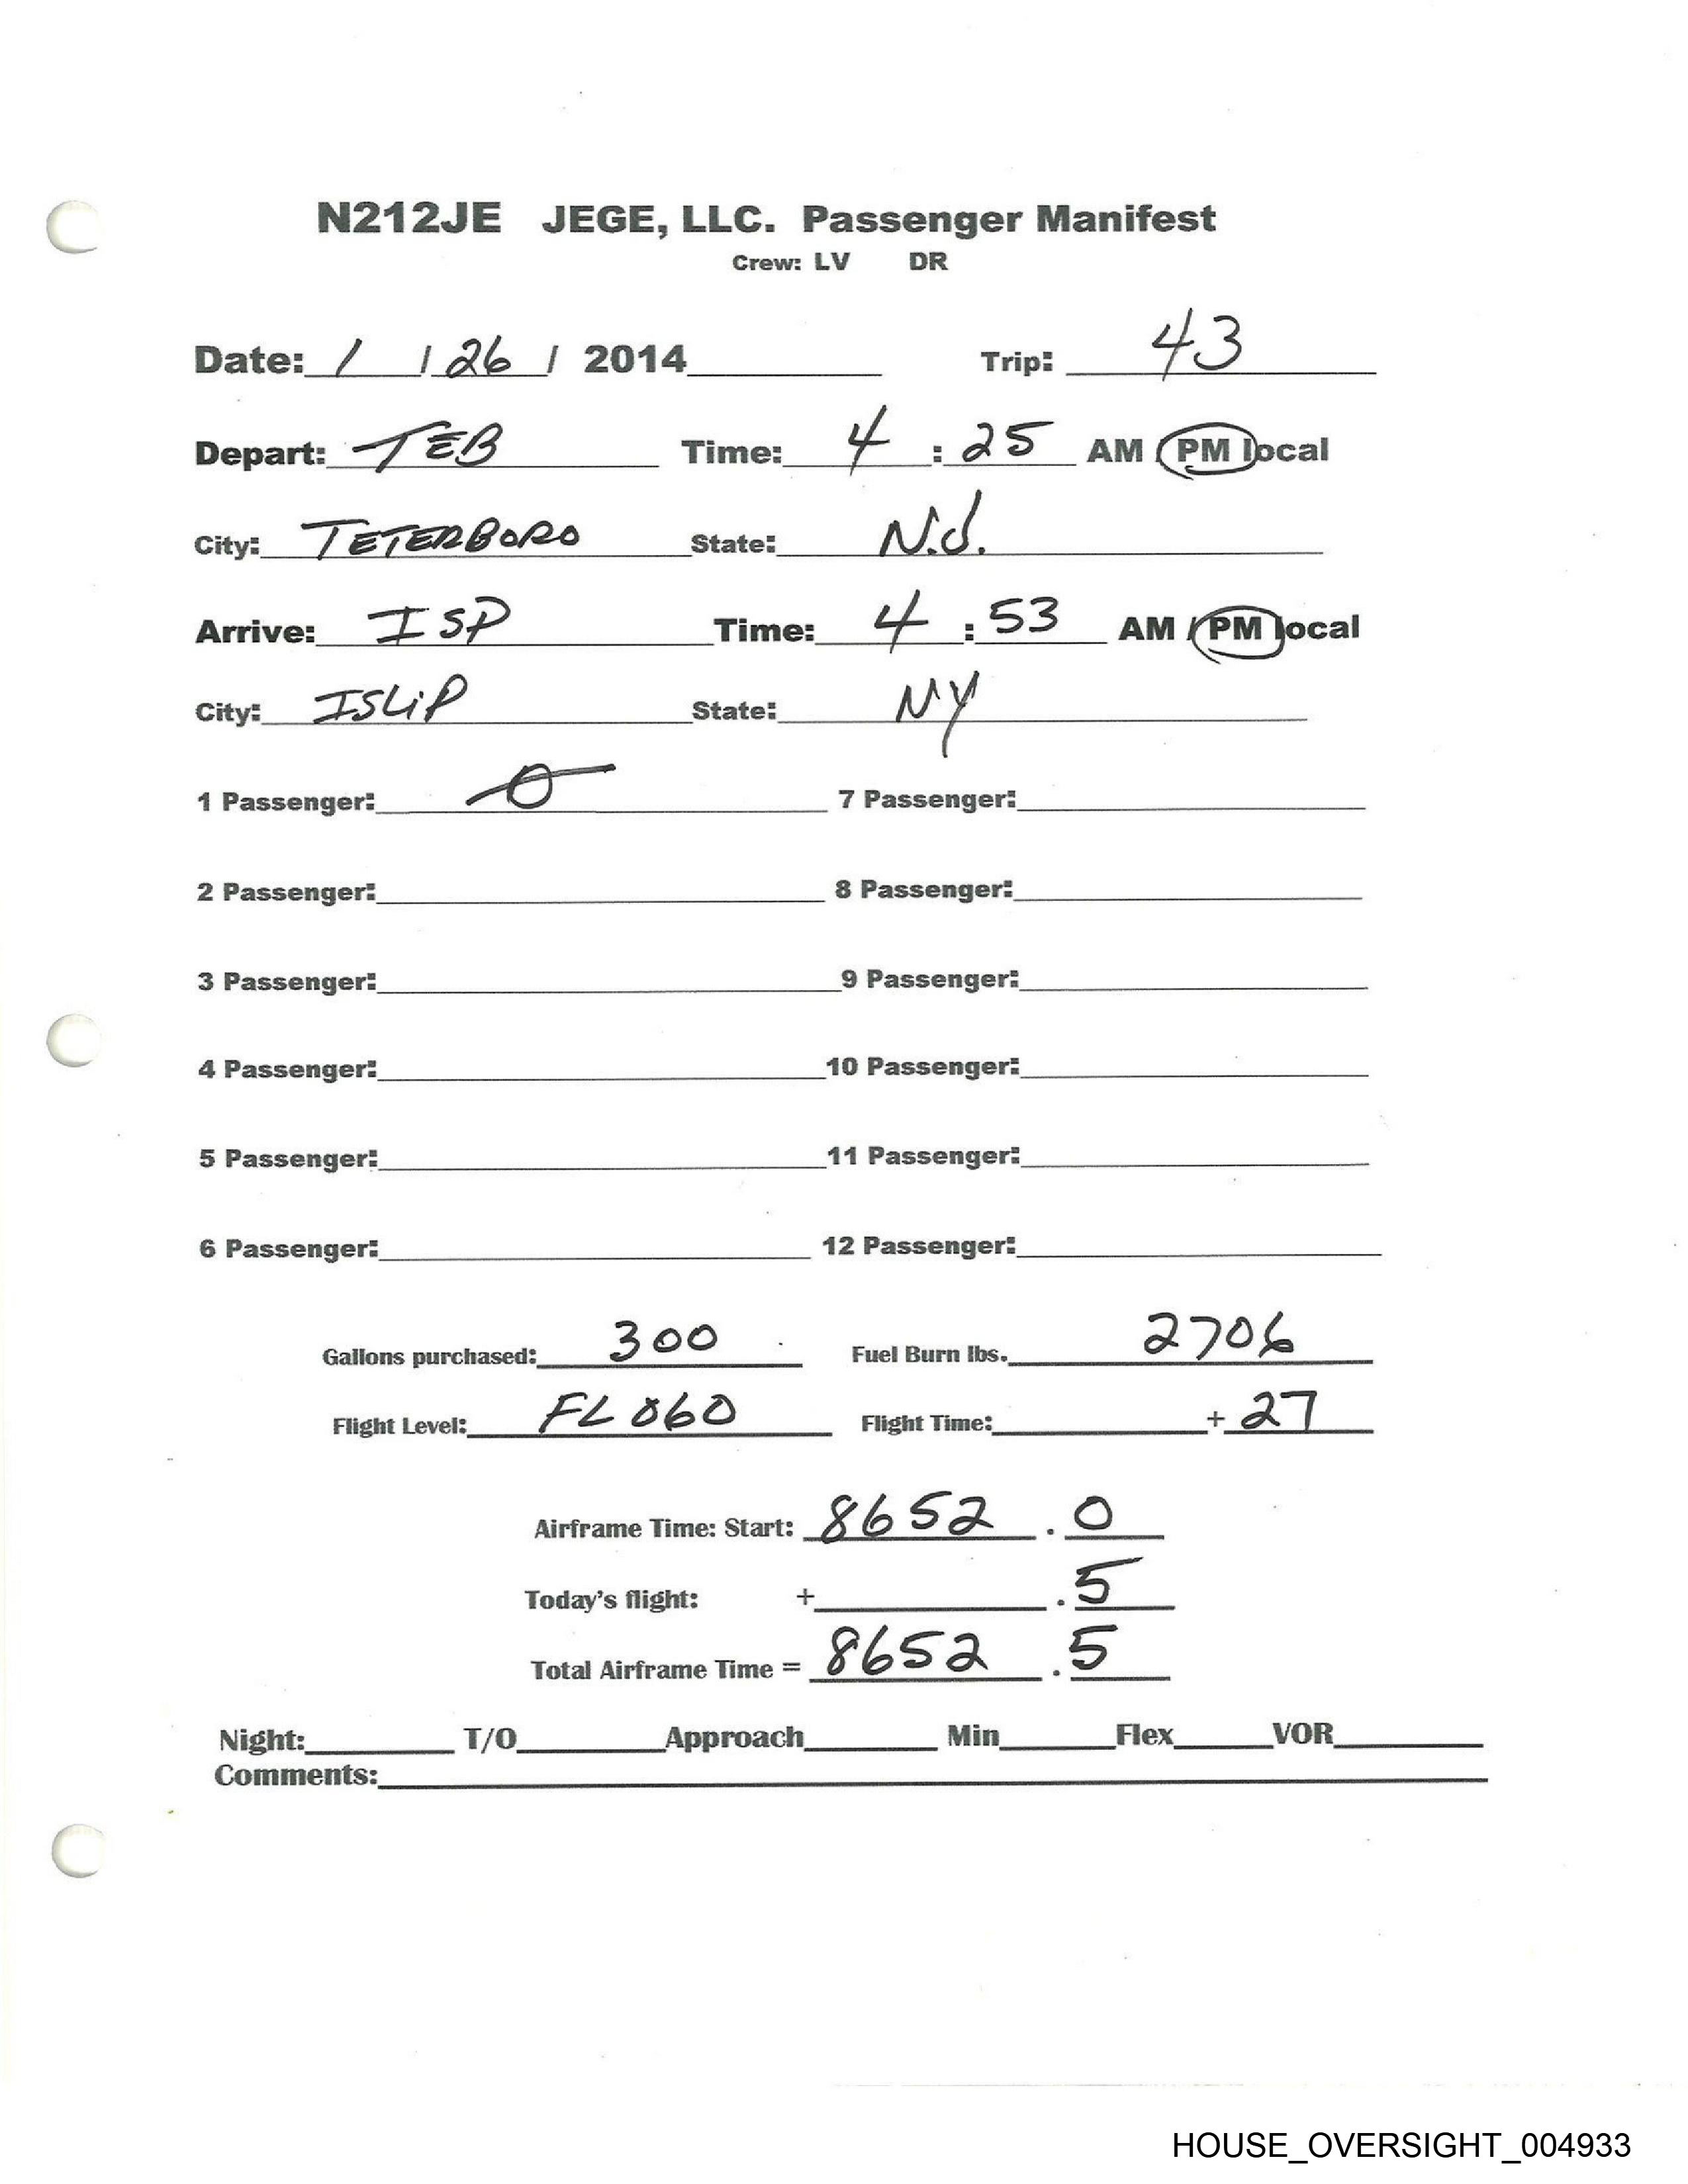 N212JE JEGE, LLC. Passenger Manifest
Crew: LV DR
Date: 1 / 26 / 2014 Trip: 43
Depart: TEB Time: 4 : 25 AM / PM local
City: TETERBORO State: N.J.
Arrive: ISP Time: 4 : 53 AM / PM local
City: ISLiP State: NY
1 Passenger: 0 7 Passenger:
2 Passenger: 8 Passenger:
3 Passenger: 9 Passenger:
4 Passenger: 10 Passenger:
5 Passenger: 11 Passenger:
6 Passenger: 12 Passenger:
Gallons purchased: 300 Fuel Burn lbs. 2706
Flight Level: FL 060 Flight Time: + 27
Airframe Time: Start: 8652 . 0
Today's flight: + . 5
Total Airframe Time = 8652 . 5
Night: T/O Approach Min Flex VOR
Comments:
HOUSE_OVERSIGHT_004933